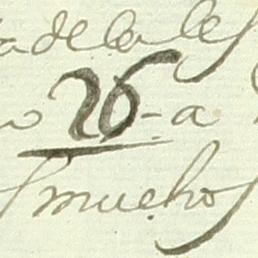 a de la les
o 26 - a
muchos